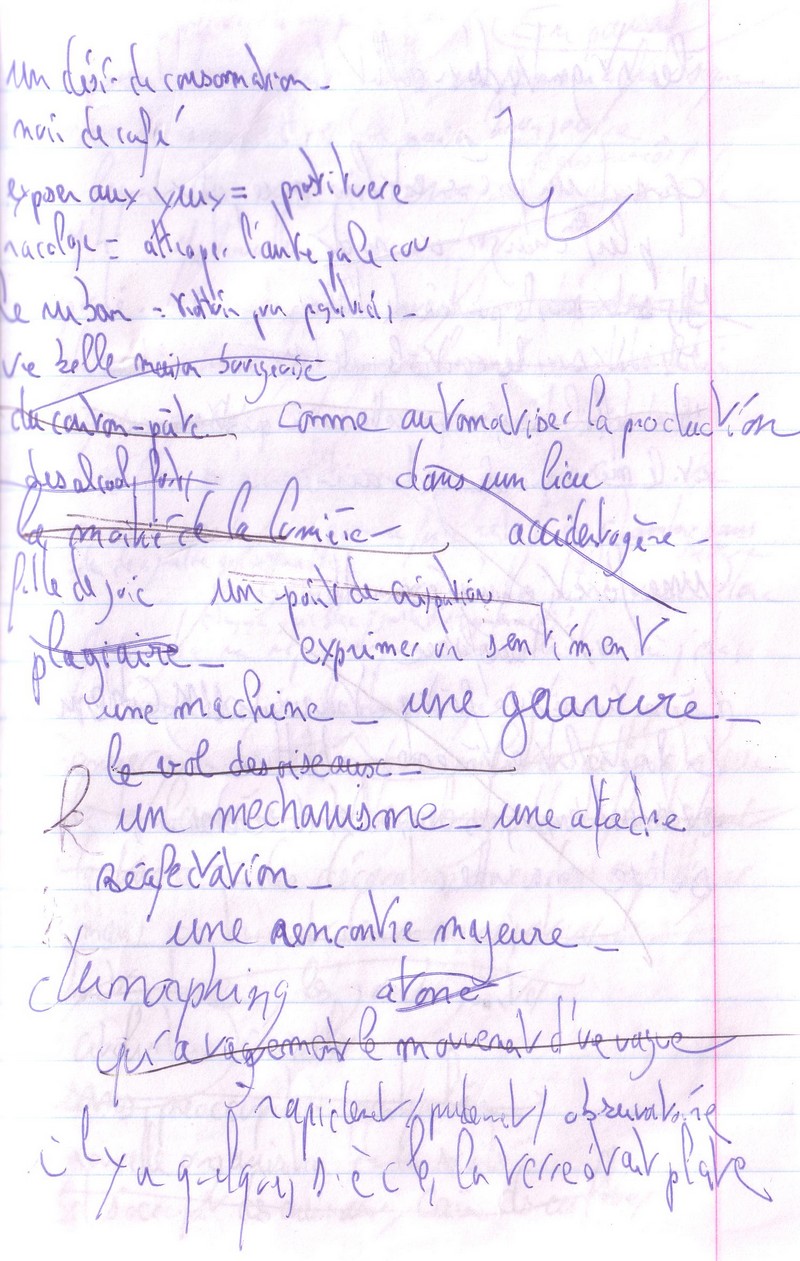 un désir de consommation -
noir de café
exposer aux yeux = prostituere
racolage = attraper l'autre par le cou
le ruban = 
vie belle maison bourgeoise
du carton-pâte comme automatiser la production
des alcools forts dans un lieu
la moitié de la lumière - accidentogère -
fille de joie un point de
plagiaire - exprimer un sentiment
une machine - une gravure -
le vol des oiseaux -
un mechanisme - une attache
réafectation -
une rencontre majeure -
morphing atone
le mouvement d'une vague
rapidement / / observatoire
il y a quelques siècles, la terre était plate,